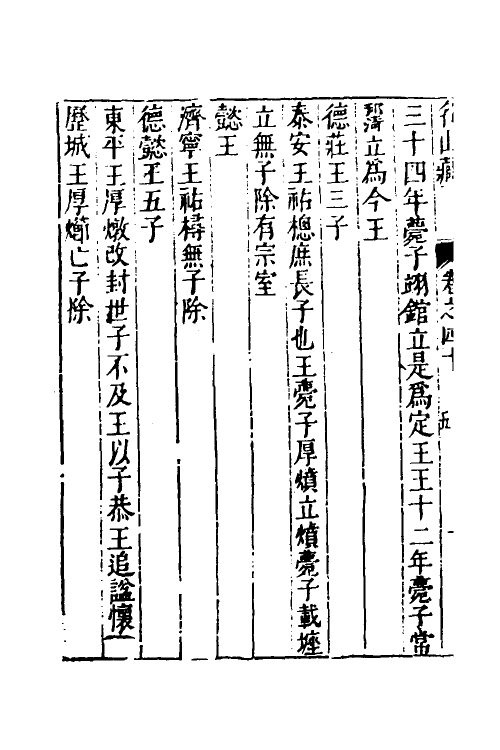 名山藏 卷之四十 五
三十四年薨子翊錧立是爲定王王十二年薨子常
立爲今王
德莊王三子
泰安王祐樬庶長子也王薨子厚燌立燌薨子載
立無子除有宗室
懿王
濟寧王祐樳無子除
德懿王五子
東平王厚燉改封世子不及王以子恭王追諡懷
歷城王厚㸅亡子除